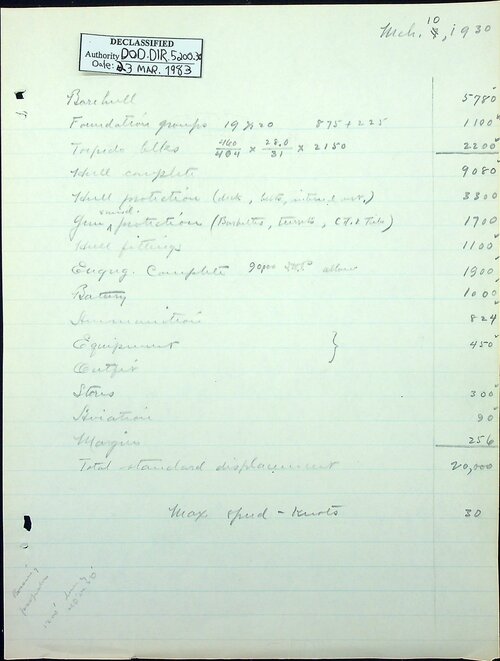 Mch. 10, 1930
DECLASSIFIED
Authority DOD.DIR.5200.30
Date: 23 MAR. 1983
Bare hull 5780
Foundation groups 19 & 20 875 + 225 1100
Torpedo blks × 28.0/31 × 2150 2200
Hull complete 9080
Hull protection (deck, belt, 3300
Gun & mixed protection (Barbettes, turrets, C.T. & Tube) 1700
Hull fittings 1100
Engng. Complete 90,000 S.H.P. allow 1900
Battery 1000
Ammunition 824
Equipment } 450
Outfit
Stores 300
Aviation 90
Margin 256
Total standard displacement 20,000
Max speed - Knots 30